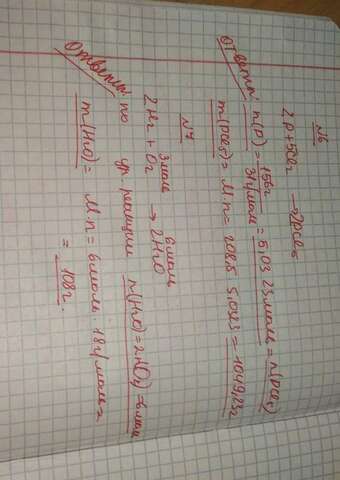 №6
2P + 5Cl2 → 2PCl5
Ответы: n(P) = 156г / 31г/моль = 5,0323моль = n(PCl5)
m(PCl5) = M·n = 208,5 · 5,0323 = 1049,23г
№7
3моль 6моль
2H2 + O2 → 2H2O
по ур. реакции n(H2O) = 2n(O2) = 6моль
Ответы: m(H2O) = M·n = 6моль · 18г/моль =
= 108г.